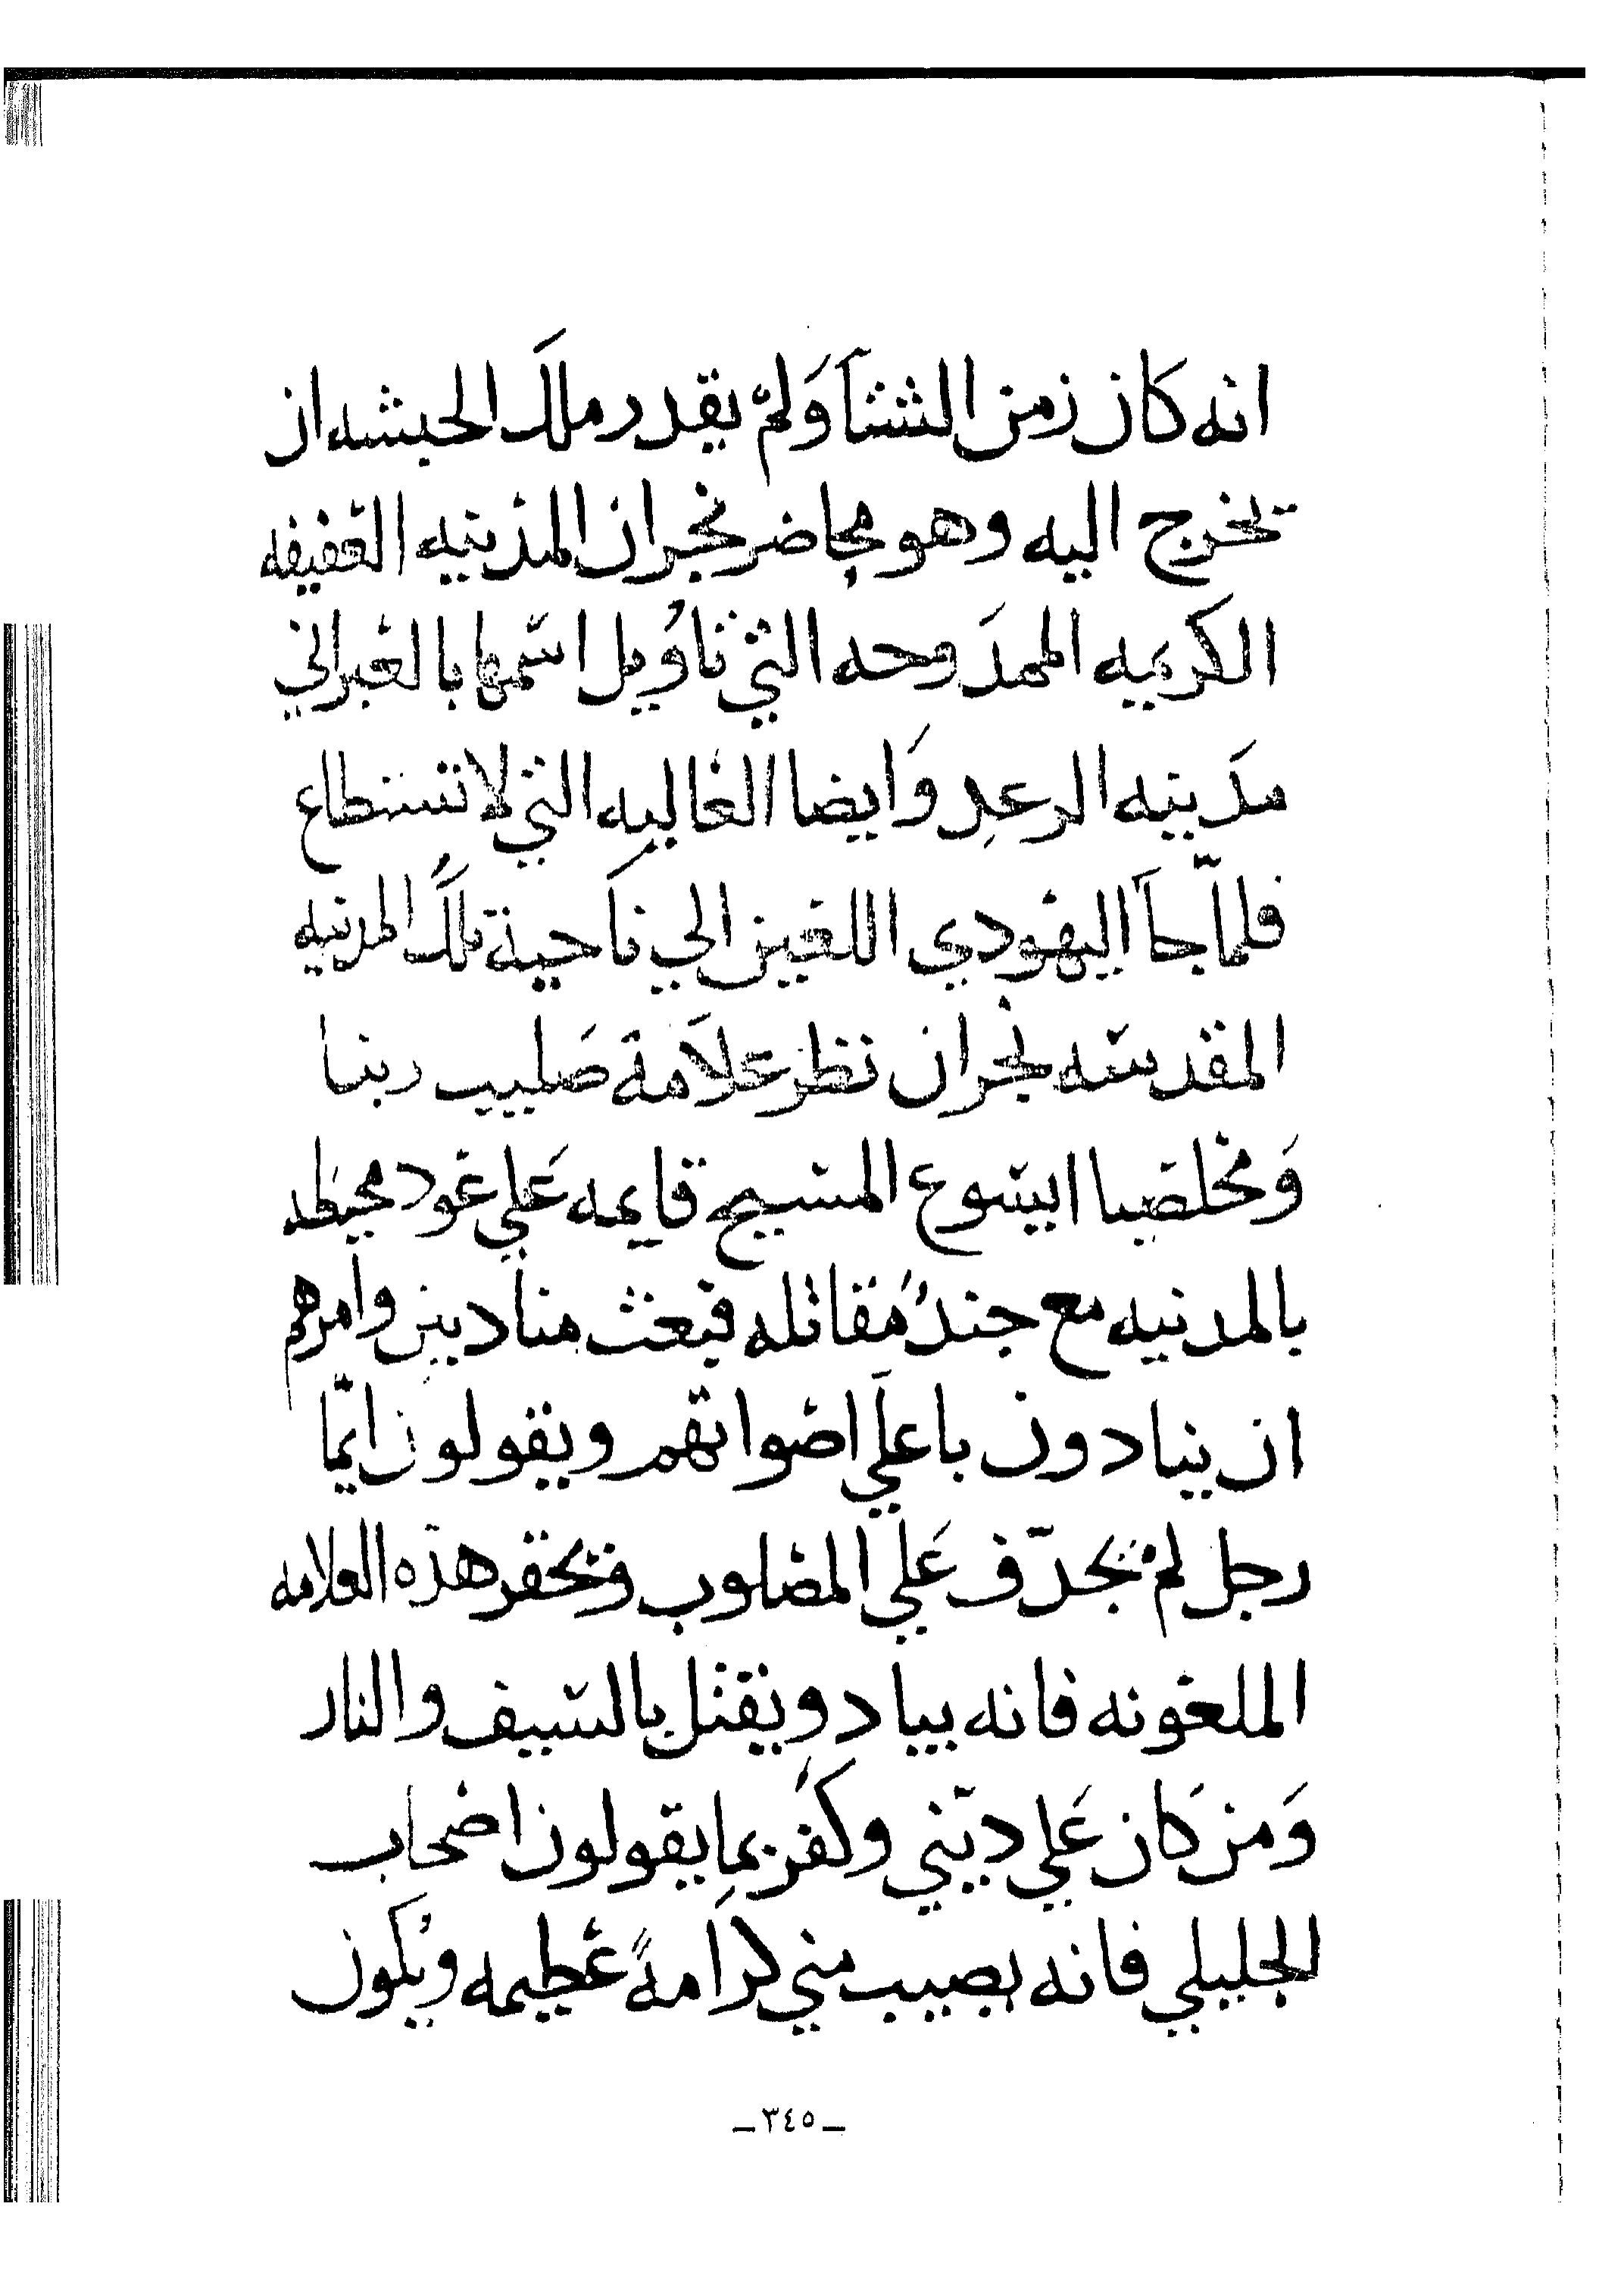 انه كان زمن الشتآ وَلم يقدر ملك الحبشه ان
يخرج اليه وهو محاضر نجران المدينه العفيفه
الكريمه الممدَوحه التي تاوُيل اسمها بالعبراني
مدَينه الرعد وَايضا الغاليه التي لا تستطاع
فلمّا جآ اليهودي اللعين الي ناَحية تلك المدينه
المقدسه نجران نظر علاَمة صَليب ربنا
وَمخلصَنا ايسوع المسيح قايمه عَلي عَود محيطه
بالمدينه مع جندُ مُقاتله فبعث منادين وامرهم
ان ينادون باعلَي اصواتهم ويقولون ايّما
رجل لم يجدّف عَلي المصلوب ويحقر هذه العلامه
الملعونه فانه يباد ويقتل بالسيف والنار
وَمن كَان عَلي ديني وكفَر بما يقولون اصحاب
الجليلي فانه يصيب مني كراَمةً عظيمه ويُكون
_٣٤٥_